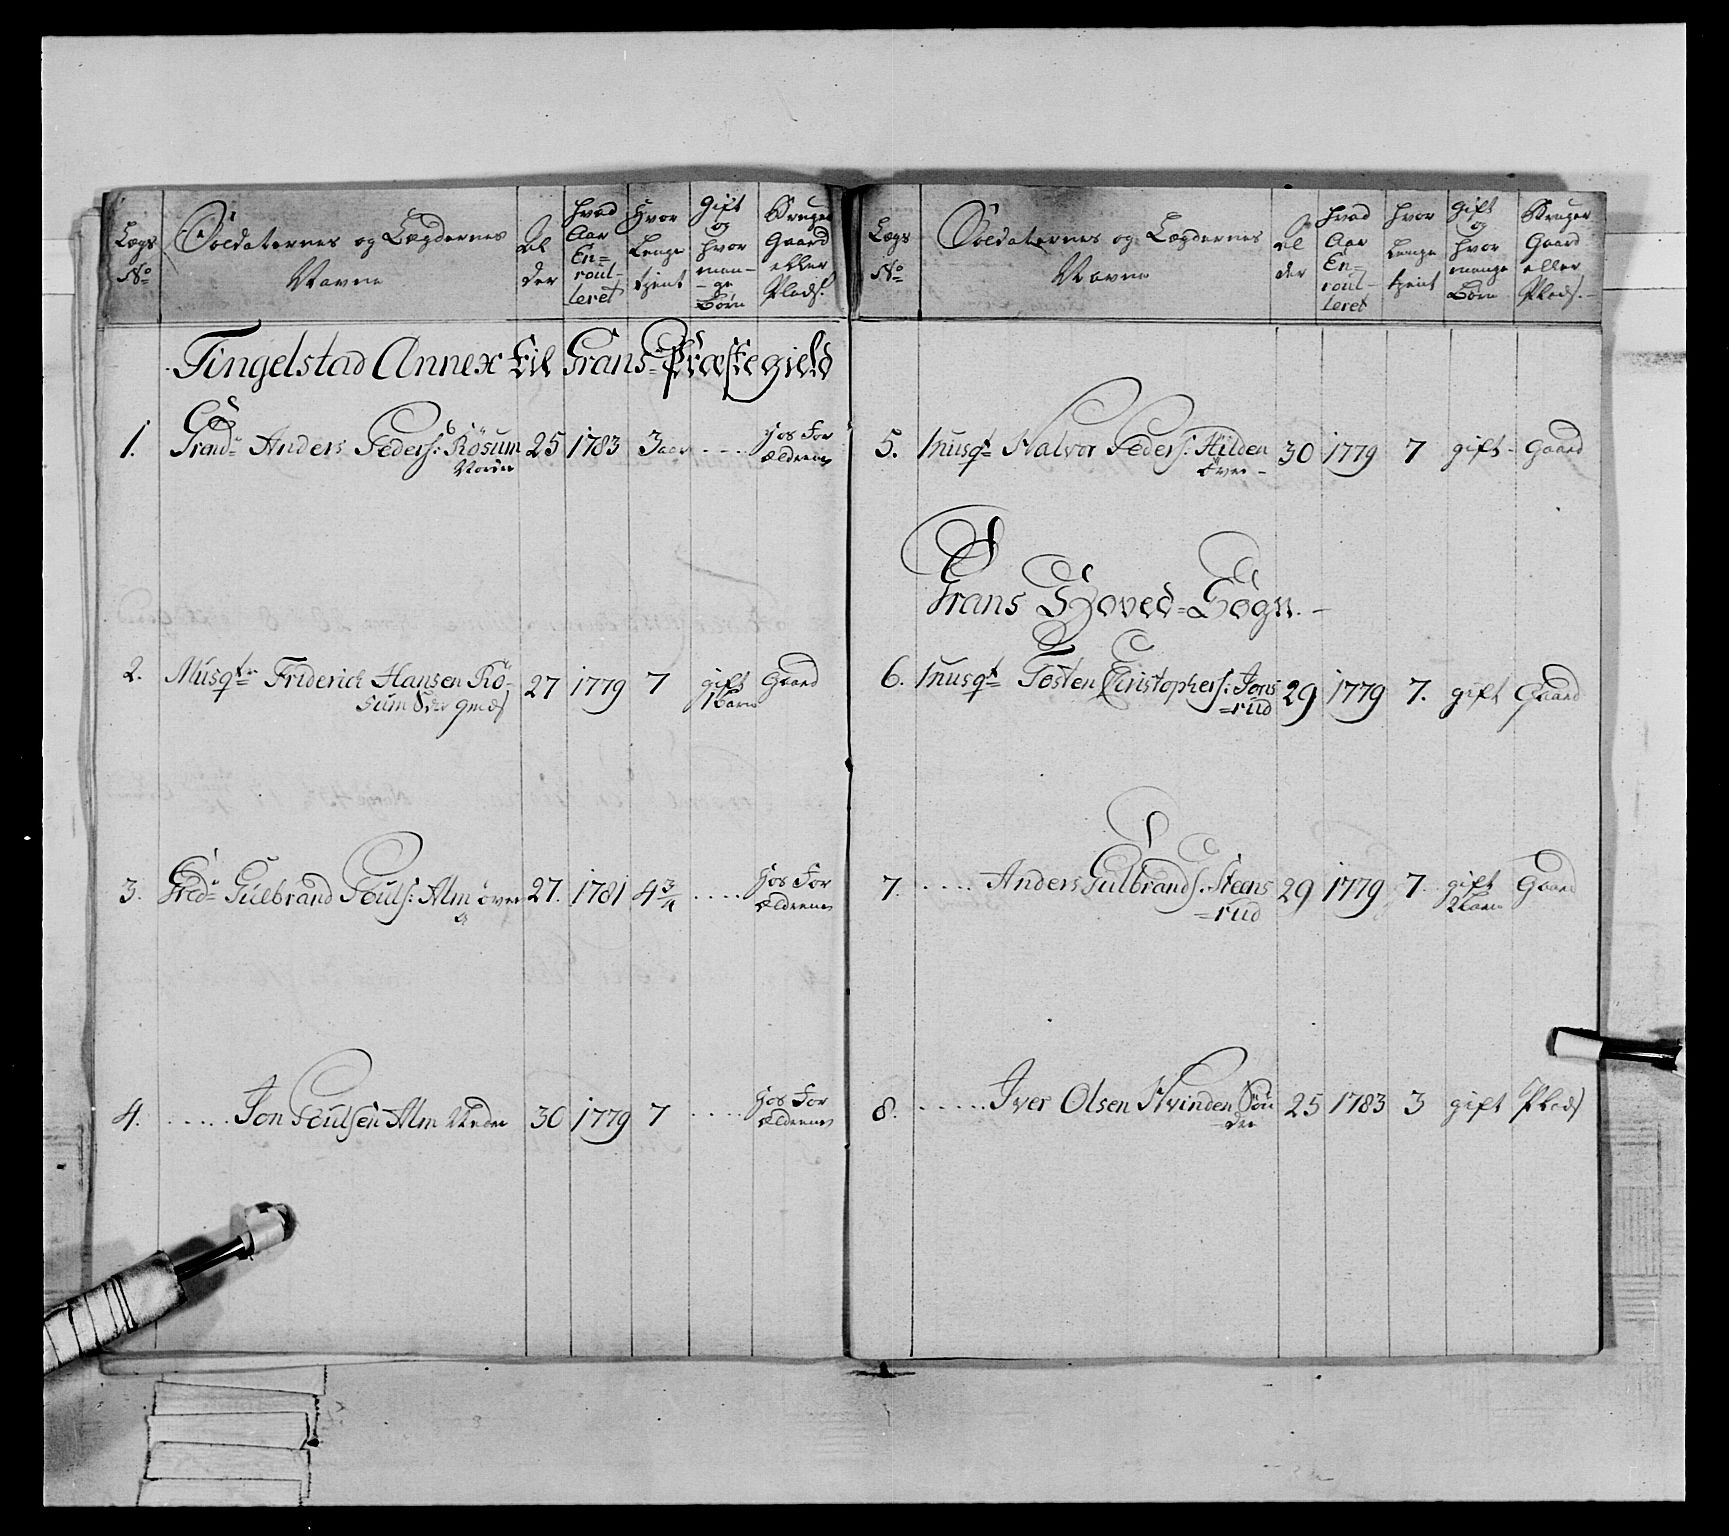 Lægs No
Soldaternes og Lægdernes Navne
Alder
hvad Aar Enroulleret
Hvor Lenge tient
Gift og hvor mange Børn
Bruger Gaard eller Plads.
Tingelstad Annex til Grans Præstegield
1. Grend: Anders Peders: Røsum 25 1783 3 aar .... hos For
Nordre ældrene
2. Musqt: Friderich Hansen Rø- 27 1779 7 gift Gaard
sum 1 Barn
3. Gred: Gulbrand Pouls: Alm øvre 27. 1781 4 3/4 .... hos For
ældrene
4. ...... Jon Poulsen Alm Nedre 30 1779 7 .... hos For
ældrene
Lægs No
Soldaternes og Lægdernes Navne
Alder
hvad Aar Enroulleret
hvor Lenge tient
Gift og hvor mange Børn
Bruger Gaard eller Plads.
5. Musqt Halvor Peders: Hilden 30 1779 7 gift Gaard
Øvre
Grans Hoved-Sogn.
6. Musqt Tosten Christophers: Jons 29 1779 7. gift Gaard
=rud
7. ..... Anders Gulbrands: Steens 29 1779 7. gift Gaard
=rud 2 Børn
8. ...... Iver Olsen Hvinden Søn 25 1783 3 gift Plads
dre